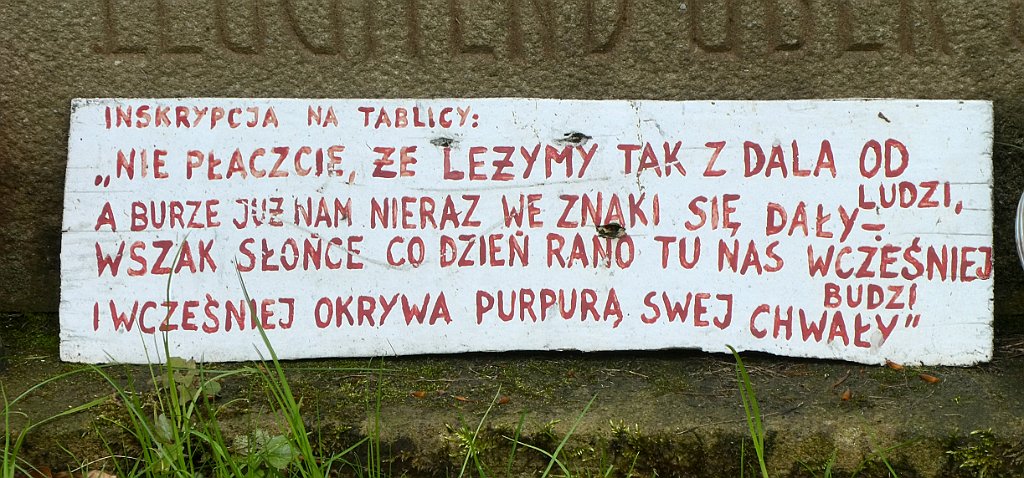 INSKRYPCJA NA TABLICY:
„NIE PŁACZCIE, ŻE LEŻYMY TAK Z DALA OD
LUDZI,
A BURZE JUŻ NAM NIERAZ WE ZNAKI SIĘ DAŁY–
WSZAK SŁOŃCE CO DZIEŃ RANO TU NAS WCZEŚNIEJ
BUDZI
I WCZEŚNIEJ OKRYWA PURPURĄ SWEJ CHWAŁY"